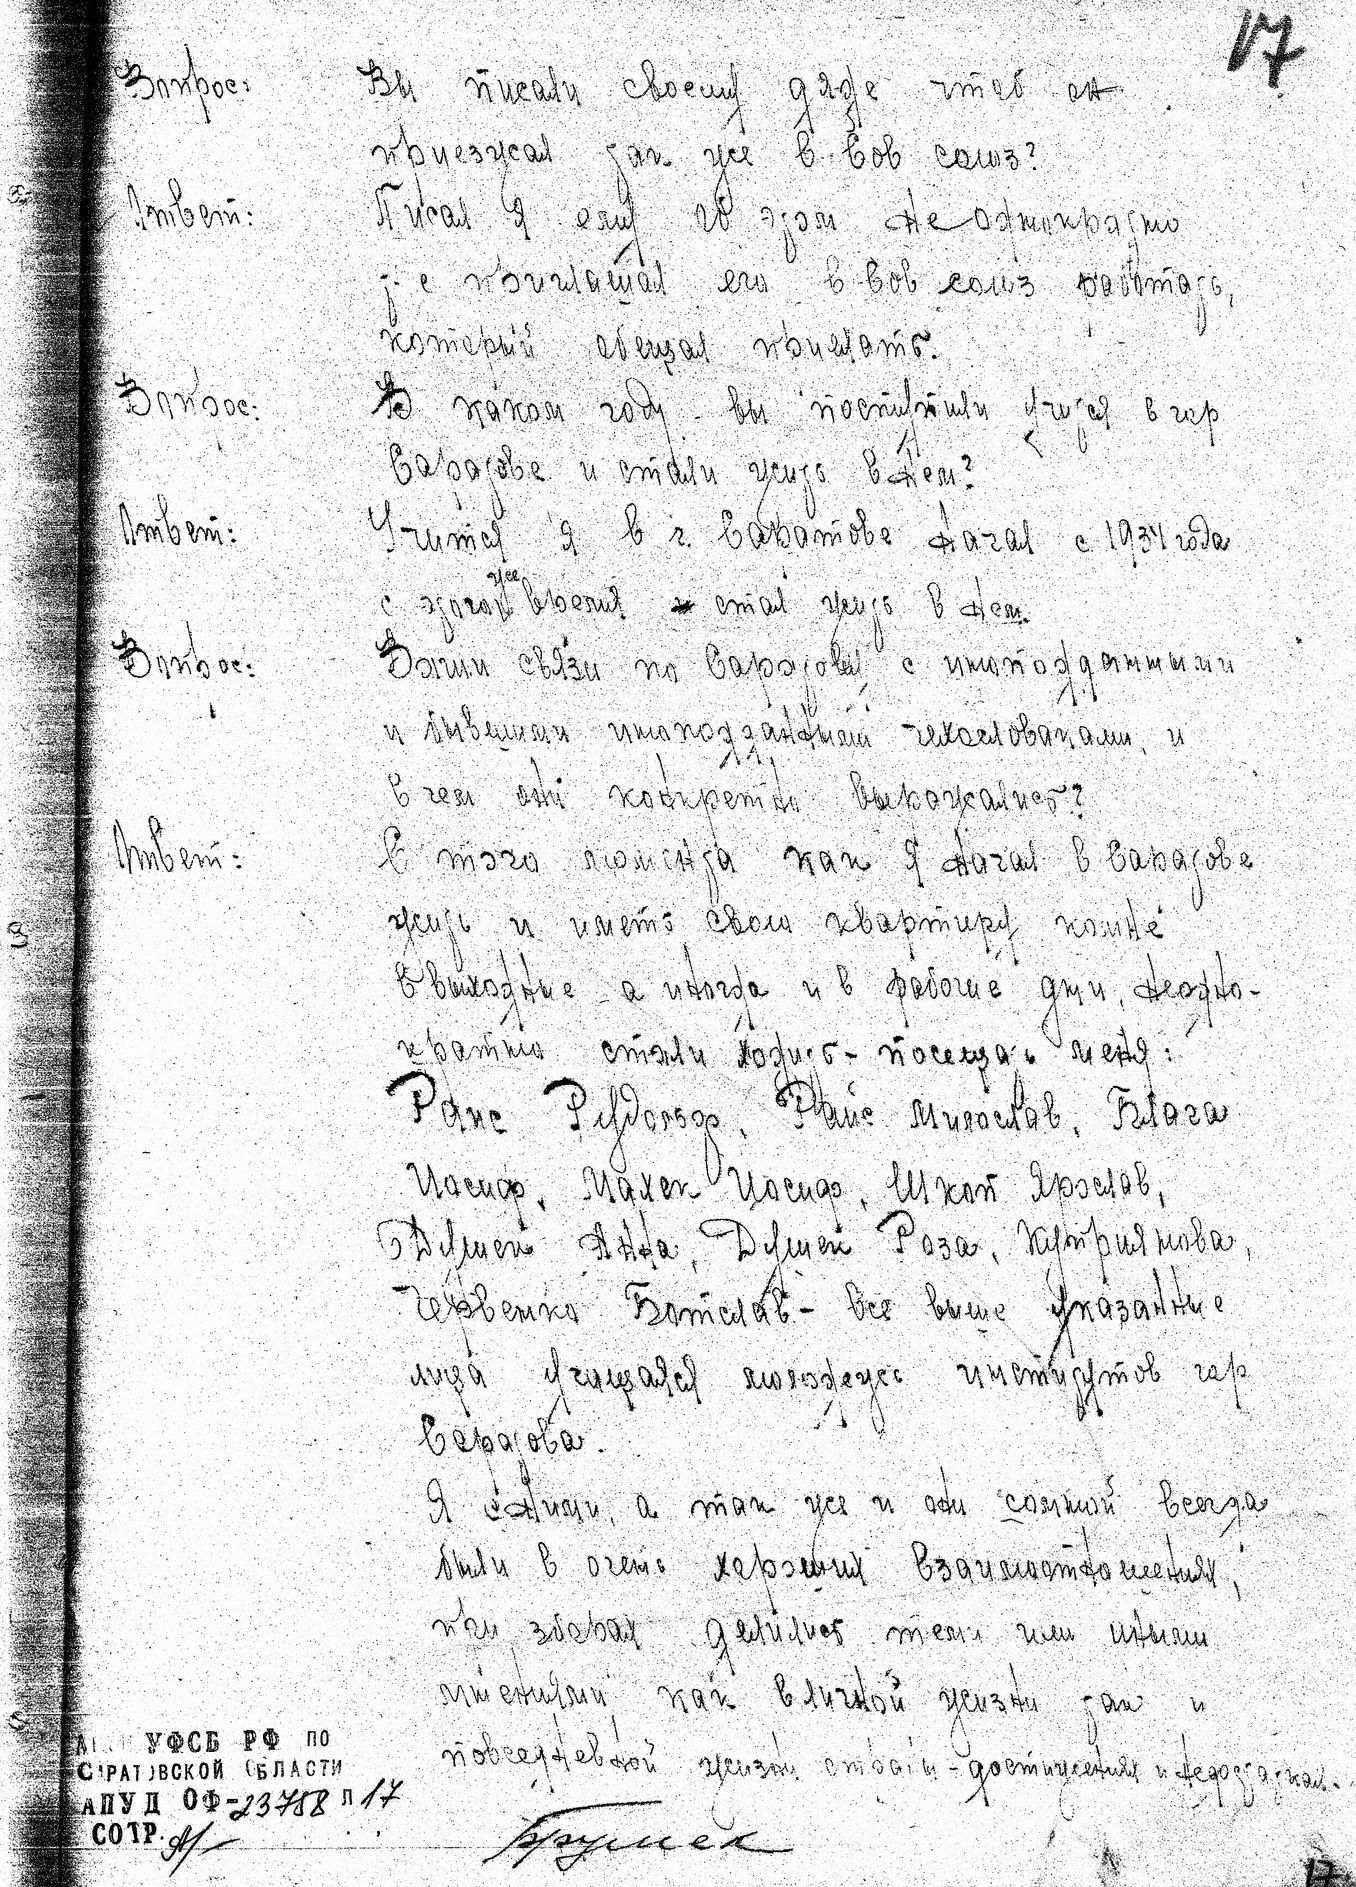 17
Вопрос: Вы писали своему дяде чтоб он
приезжал так же в Сов союз?
Ответ: Писал я ему об этом не однократно
т-е приглашал его в Сов союз работать,
который обещал приехать.
Вопрос: В каком году вы поступили учится в гор
Саратове и стали жить в нем?
Ответ: Учится я в г. Саратове начал с 1934 года
с этого же время и стал жить в нем.
Вопрос: Ваши связи по Саратову с иноподданными
и бывшими иноподданными чехословаками, и
в чем они конкретно выражались?
Ответ: С того момента как я начал в Саратове
жить и иметь свою квартиру комне
в выходные а иногда и в рабочие дни, неодно-
кратно стали ходить - посещать меня:
Райс Рудольф, Райс Милослав, Блага
Иосиф, Малек Иосиф, Шкоп Ярослав,
Думек Анна, Думек Роза, Куприянова,
Червенко Ботслав - все выше указанные
лица учищаяся молодежь институтов гор
Саратова.
Я сними, а так же и они сомной всегда
были в очень хороших взаимоотношениях,
при делились теми или иными
мнениями как в личной жизни так и
повседневной жизни страны - достижениях и недостатках.
УФСБ РФ ПО
САРАТОВСКОЙ ОБЛАСТИ
АПУД ОФ-23788 л 17
СОТР.
17